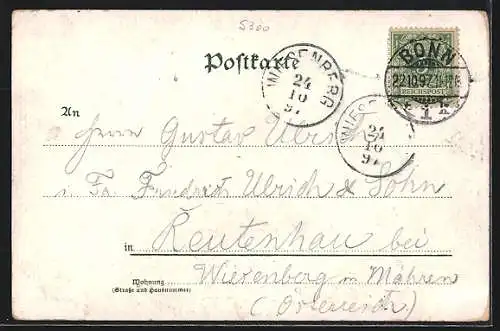 5300
Postkarte
BONN
22.10.97
REICHSPOST
* 1 k
WIESENBERG
24
10
97
WIESE
24
10
97
An
Herrn Gustav Ulrich
i. Fa. Friedrich Ulrich & Sohn
in Reutenhau bei
Wohnung
(Straße und Hausnummer)
Wiesenberg in Mähren
(Österreich)